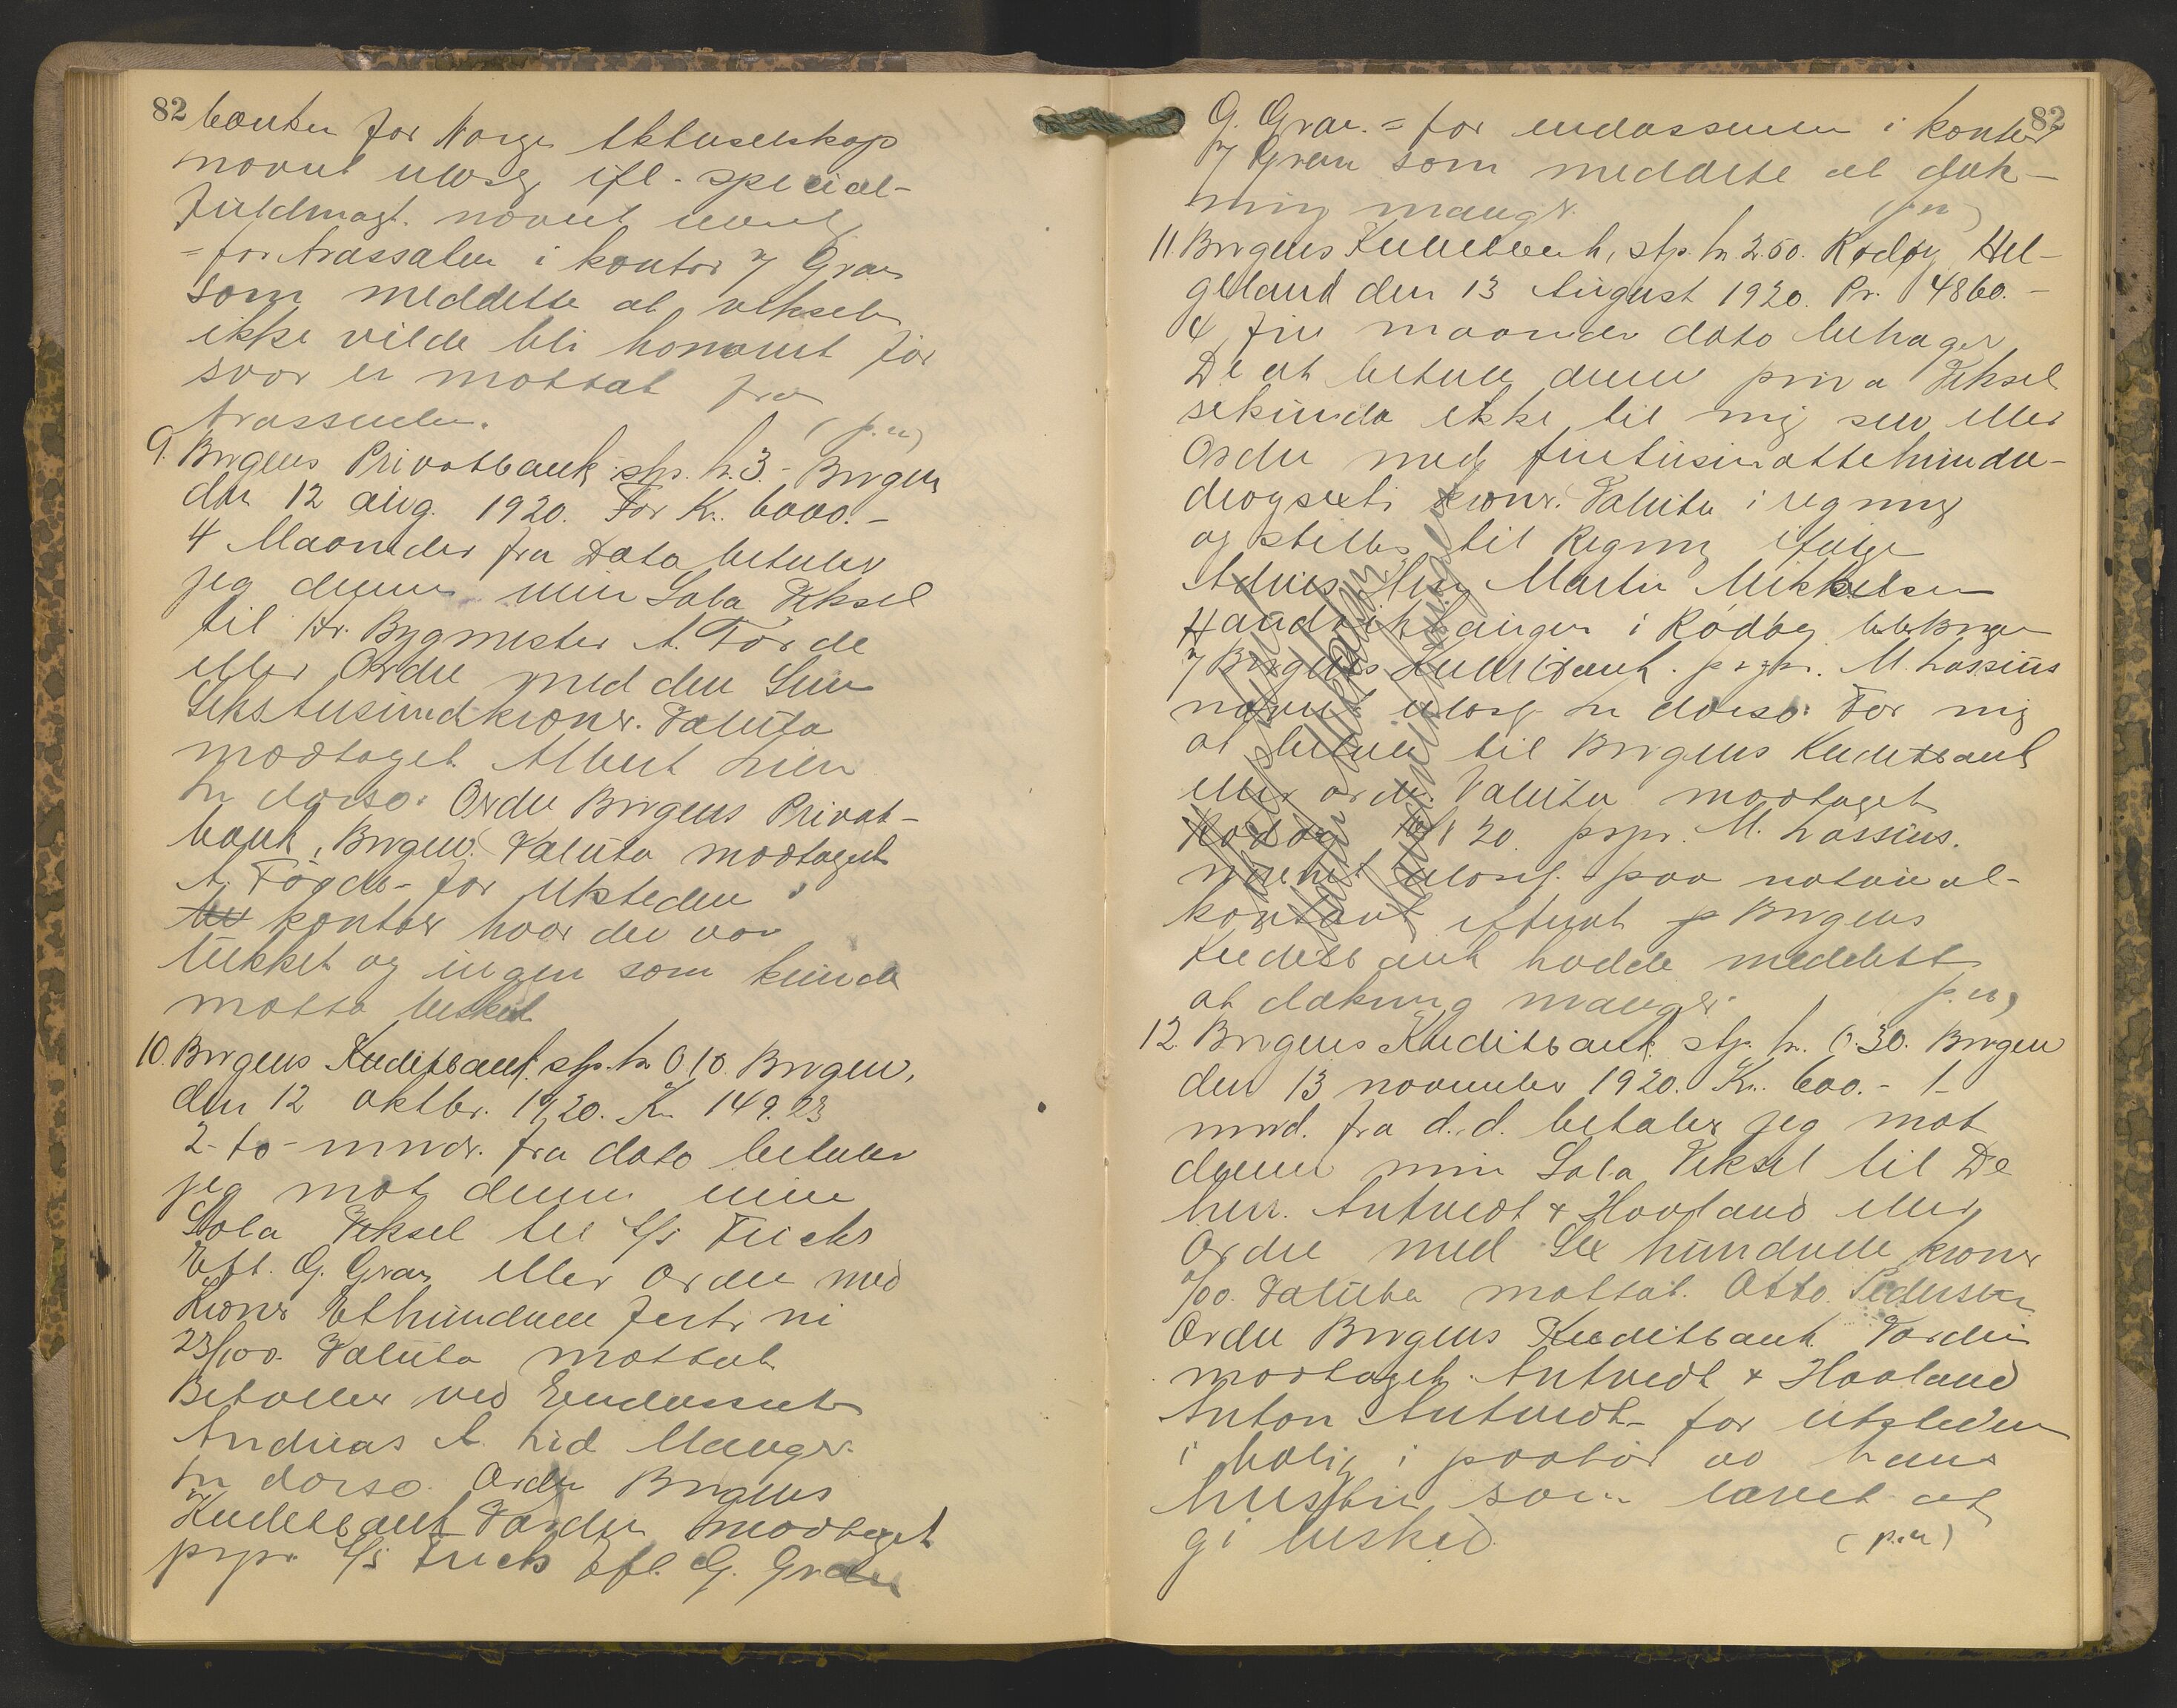 82
banken for Norge Aktieselskap
navnet ulæsel. ifl. special-
fuldmagt. navnet
= for trassaten i kontor v/ Gran
som meddelte at vekselen
ikke vilde bli honoreret før
svar er mottat fra
trassenten. (p.u)
9. Bergens Privatbank stp. kr. 3.- Bergen
den 12 aug. 1920. For Kr. 6000.-
4 Maaneder fra Dato betaler
jeg denne min Sola Veksel
til Hr. Bygmester A. Förde
eller Ordre med den Sum
Sekstusindkroner. Valuta
modtaget. Albert Lien
In dorso: Ordre Bergens Privat-
bank, Bergen. Valuta modtaget
A. Förde - for utstederen i
kontor hvor der var
lukket og ingen som kunde
motta besked
10. Bergens Kreditbank. stp. kr 0.10. Bergen,
den 12 oktbr. 1920. Kr 149.23
2- to - mndr. fra dato betaler
jeg mot denne min
Sola Veksel til
Eft. G. Gran eller ordre med
Kroner Ethundrede førti ni
23/100. Valuta mottat
Betales ved Endossent
Andreas A. Lid Manger.
In dorso. Ordre Bergens
Kreditbank Værdien modtaget
prpr. Eft. G. Gran
82
G. Gran. = for endossenten i kontor
v/ Gran som meddelte at dæk-
ning mangler. (p.u)
11. Bergens Kreditbank, stp. kr 2.50. Rødøy Hel-
geland den 13 August 1920. Pr. 4860.-
4 fire maaneder dato behager
De at betale denne prima Veksel
sekunda ikke til mig selv eller
Ordre med firetusinottehundre-
deogsexti kroner. Valuta i regning
og stilles til Regning ifølge
Advis. Herr Martin Mikkelsen
i Rødøy
v/ Bergens Kreditbank. prpr. M. Lassius
navnet ulæsel. In dorso: For mig
at betale til Bergens Kreditbank
eller ordre. Valuta modtaget
Rødøy 20. prpr. M. Lassius.
navnet ulæsel. paa notarial-
kontoret efterat Bergens
Kreditbank hadde meddelt
at dækning mangler. p.u)
12. Bergens Kreditbank. stp. kr. 0.30. Bergen
den 13 november 1920. Kr. 600.- 1-
mnd. fra d.d. betaler jeg mot
denne min Sola Veksel til De
herr. Antvedt & Hovland eller
Ordre med Sex hundrede kroner
/00. Valuta mottat. Otto Pedersen
Ordre Bergens Kreditbank Værdien
modtaget. Antvedt & Hovland
Anton Antvedt - for utstederen
i bolig i paahør av hans
hustru som lovet at
gi besked. (p.u)